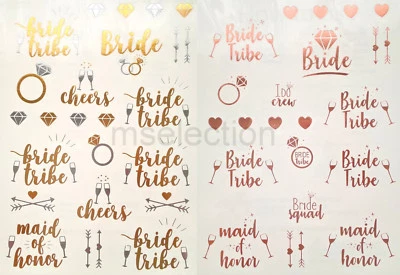 bride
tribe
Bride
cheers
bride
tribe
bride
tribe
cheers
bride
tribe
bride
tribe
cheers
maid
of
honor
bride
tribe
Bride
I do
crew
Bride
Tribe
Bride
Tribe
Bride
Tribe
Bride
tribe
Bride
Tribe
Bride
squad
maid
of
honor
maid
of
honor
mselection